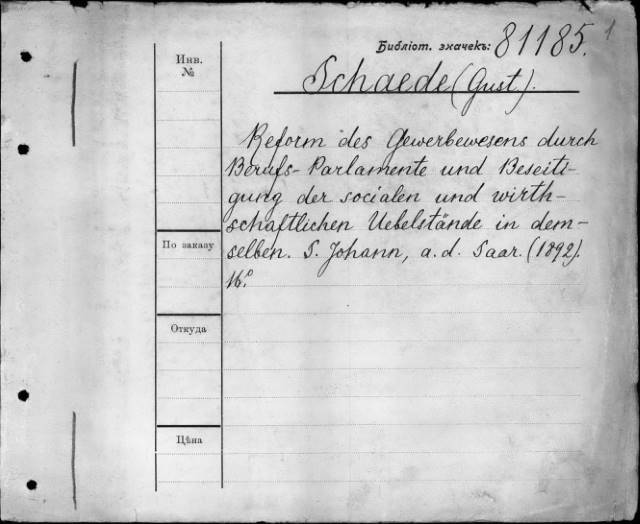 Библіот. значекъ: 81185. 1
Инв.
№
Schaede (Gust).
Reform des Gewerbewesens durch
Berufs-Parlamente und Beseiti-
gung der socialen und wirth-
schaftlichen Uebelstände in dem-
selben. S. Johann, a. d. Saar. (1892).
16°.
По заказу
Откуда
Цѣна